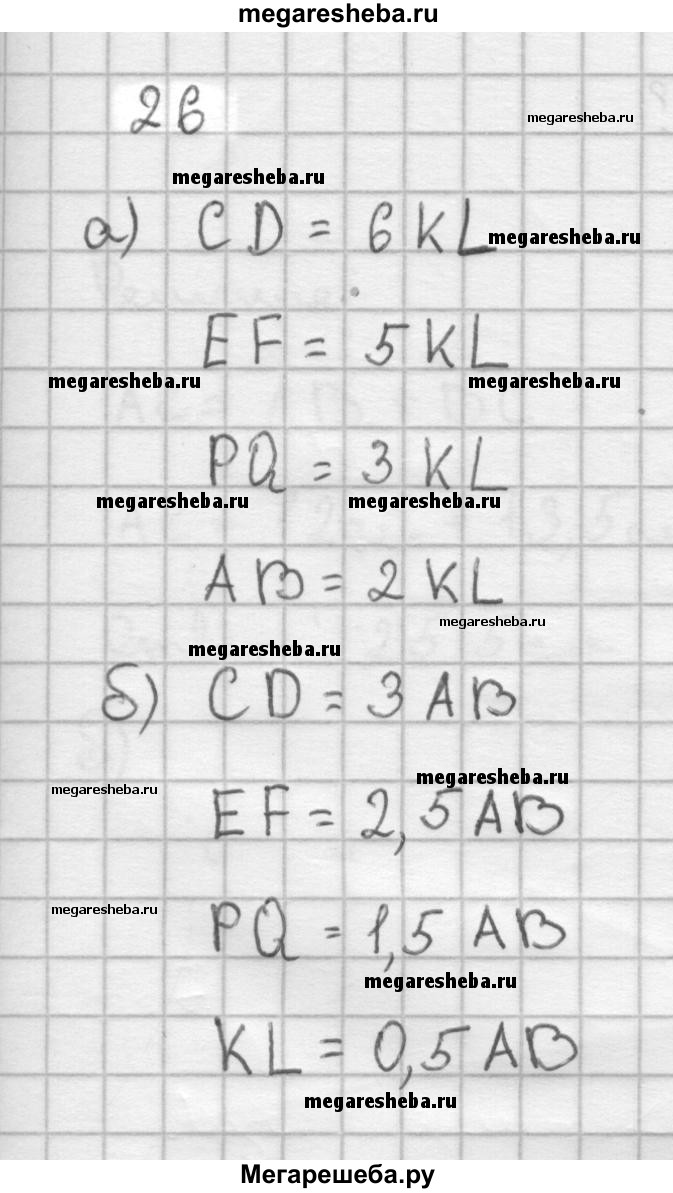 megaresheba.ru
26
megaresheba.ru
megaresheba.ru
а) CD = 6 KL
megaresheba.ru
EF = 5 KL
megaresheba.ru megaresheba.ru
PQ = 3 KL
megaresheba.ru megaresheba.ru
AB = 2 KL
megaresheba.ru
megaresheba.ru
б) CD = 3 AB
megaresheba.ru
megaresheba.ru
EF = 2,5 AB
megaresheba.ru
PQ = 1,5 AB
megaresheba.ru
KL = 0,5 AB
megaresheba.ru
Мегарешеба.ру